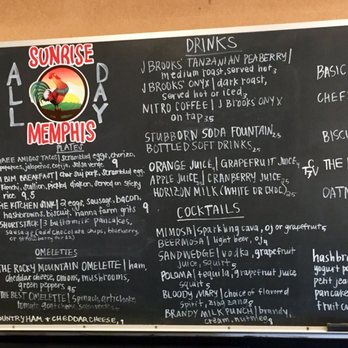 ALL DAY
SUNRISE
MEMPHIS
PLATES
THREE AMIGOS TACOS | scrambled eggs, chorizo,
potatoes, jalapeño, cotija, salsa verde 9
BREAKFAST | char sui pork, scrambled egg
kimchi, scallion, pickled onion, served on sticky
rice 9.5
THE KITCHEN SINK | 2 eggs, sausage, bacon,
hashbrowns, biscuit, hanna farm grits 9
SHORT STACK | 3 buttermilk pancakes,
sausage (add choco chips, blueberries,
or strawberries
OMELETTES
THE ROCKY MOUNTAIN OMELETTE | ham,
cheddar cheese, onions, mushrooms,
green peppers
THE BEST OMELETTE | spinach, artichoke
tomato, goat cheese
COUNTRY HAM + CHEDDAR CHEESE, 9
DRINKS
J BROOKS TANZANIAN PEABERRY |
medium roast, served hot 3
J BROOKS ONYX | dark roast,
served hot or iced 3
NITRO COFFEE | J BROOKS ONYX
on tap 35
STUBBORN SODA FOUNTAIN 25
BOTTLED SOFT DRINKS 25
ORANGE JUICE | GRAPEFRUIT JUICE
APPLE JUICE | CRANBERRY JUICE 35
HORIZON MILK (WHITE OR CHOC) 25
COCKTAILS
MIMOSA | sparkling cava, oj or grapefruit 5
BEERMOSA | light beer, oj 5
SANDWEDGE | vodka, grapefruit
juice, squirt 5
PALOMA | tequila, grapefruit juice
squirt 5
BLOODY MARY | choice of flavored
spirit, zing zang 5
BRANDY MILK PUNCH | brandy,
cream, nutmeg 9
BASIC
CHEF
BISC
OATM
THE
hashbr
yogurt p
petit jean
pancake
fruit c